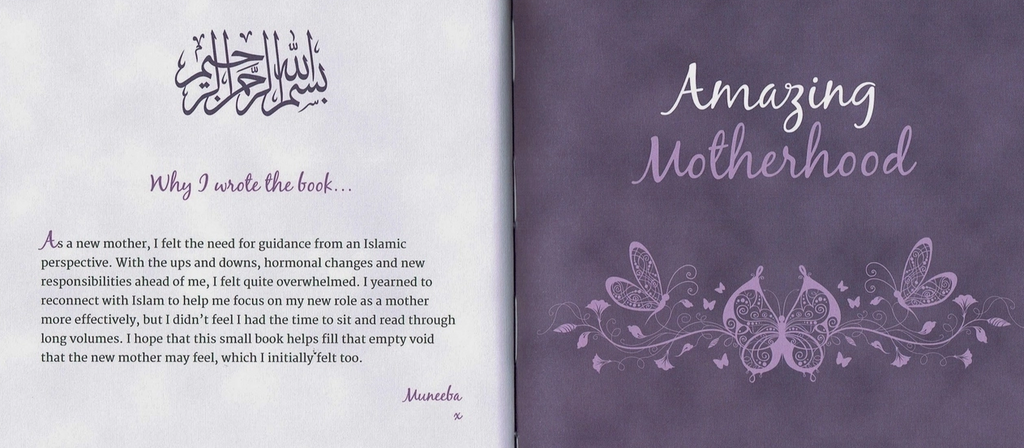 بسم الله الرحمن الرحيم
Why I wrote the book...
As a new mother, I felt the need for guidance from an Islamic
perspective. With the ups and downs, hormonal changes and new
responsibilities ahead of me, I felt quite overwhelmed. I yearned to
reconnect with Islam to help me focus on my new role as a mother
more effectively, but I didn’t feel I had the time to sit and read through
long volumes. I hope that this small book helps fill that empty void
that the new mother may feel, which I initially felt too.
Muneeba
x
Amazing
Motherhood